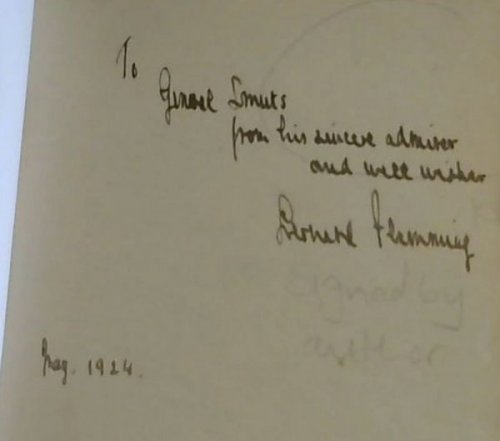 To
General Smuts
from his sincere admirer
and well wisher
Leonard Flemming
signed by
author
May. 1924.